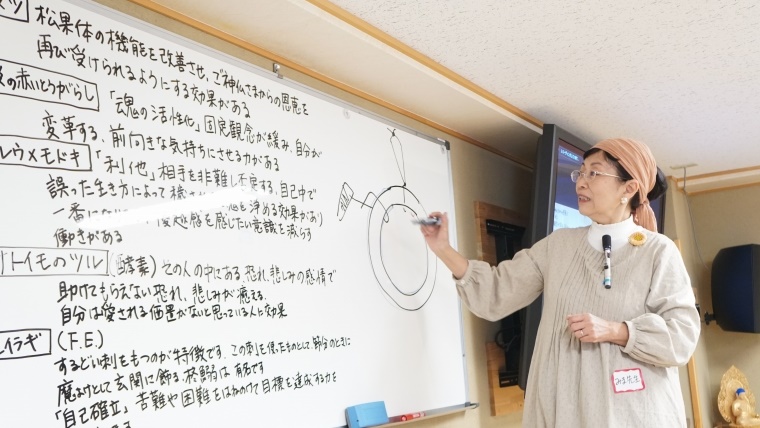 マツ
松果体の機能を改善させ、ご神仏さまからの恩恵を
再び受けられるようにする効果がある
の赤いとうがらし
「魂の活性化」固定観念が緩み、自分が
変革する、前向きな気持ちにさせる力がある
ウメモドキ
「利他」相手を非難し
誤った生き方によって
自己中で
一番に
優越感を感じたい意識を減らす
を浄める効果があり
働きがある
トイモのツル
(酵素)その人の中にある恐れ、悲しみの感情で
助けてもらえない恐れ、悲しみが癒える
自分は愛される価値がないと思っている人に効果
イラギ
(F.E.)
するどい刺をもつのが特徴です。この刺を使ったものとして節分のときに
魔よけとして玄関に飾る、柊鰯は有名です
「自己確立」苦難や困難をはねのけて目標を達成する力を
みま先生